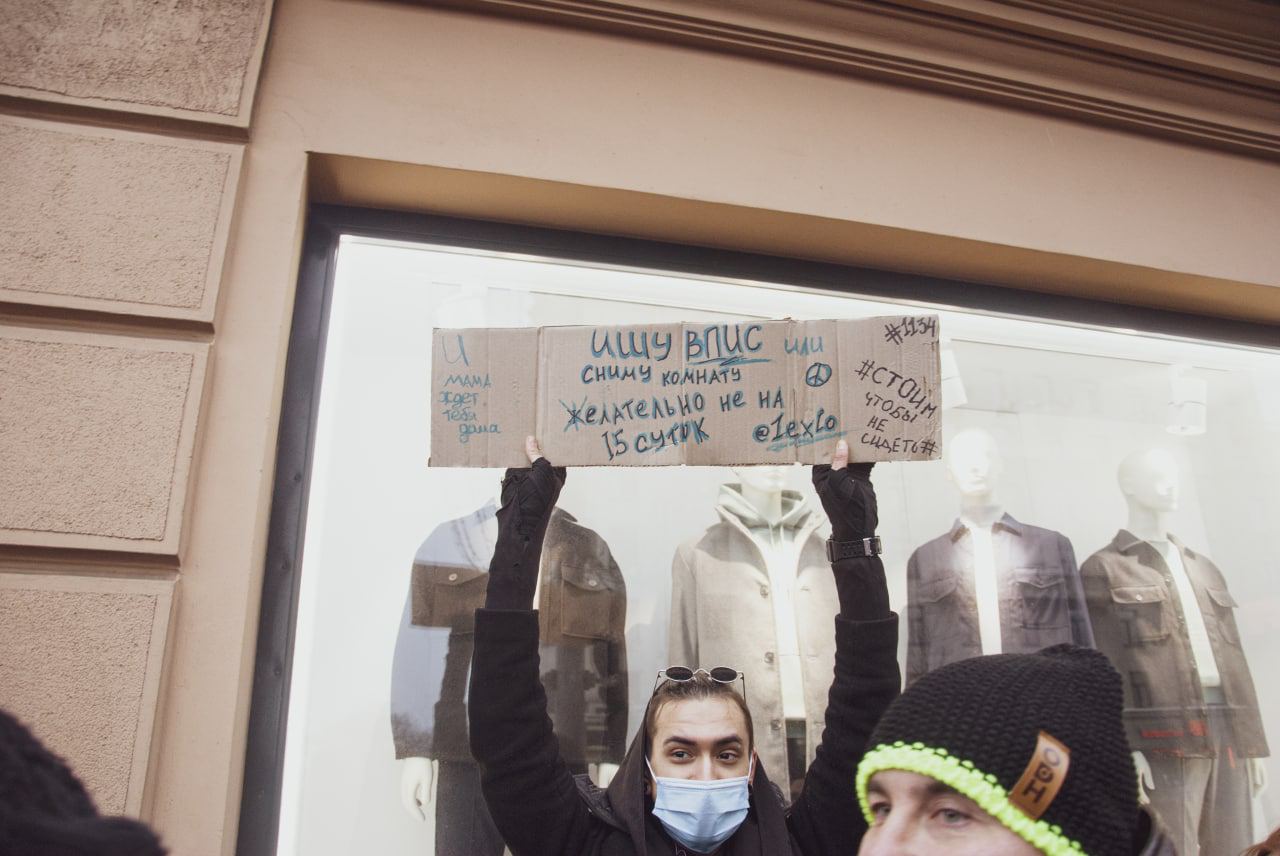 И
МАМА
ждет
тебя
дома
ИЩУ ВПИС или
СНИМУ КОМНАТУ
ЖЕЛАТЕЛЬНО НЕ НА
15 СУТОК
@1ex1o
#1134
#СТОИМ
ЧТОБЫ
НЕ
СИДЕТЬ#